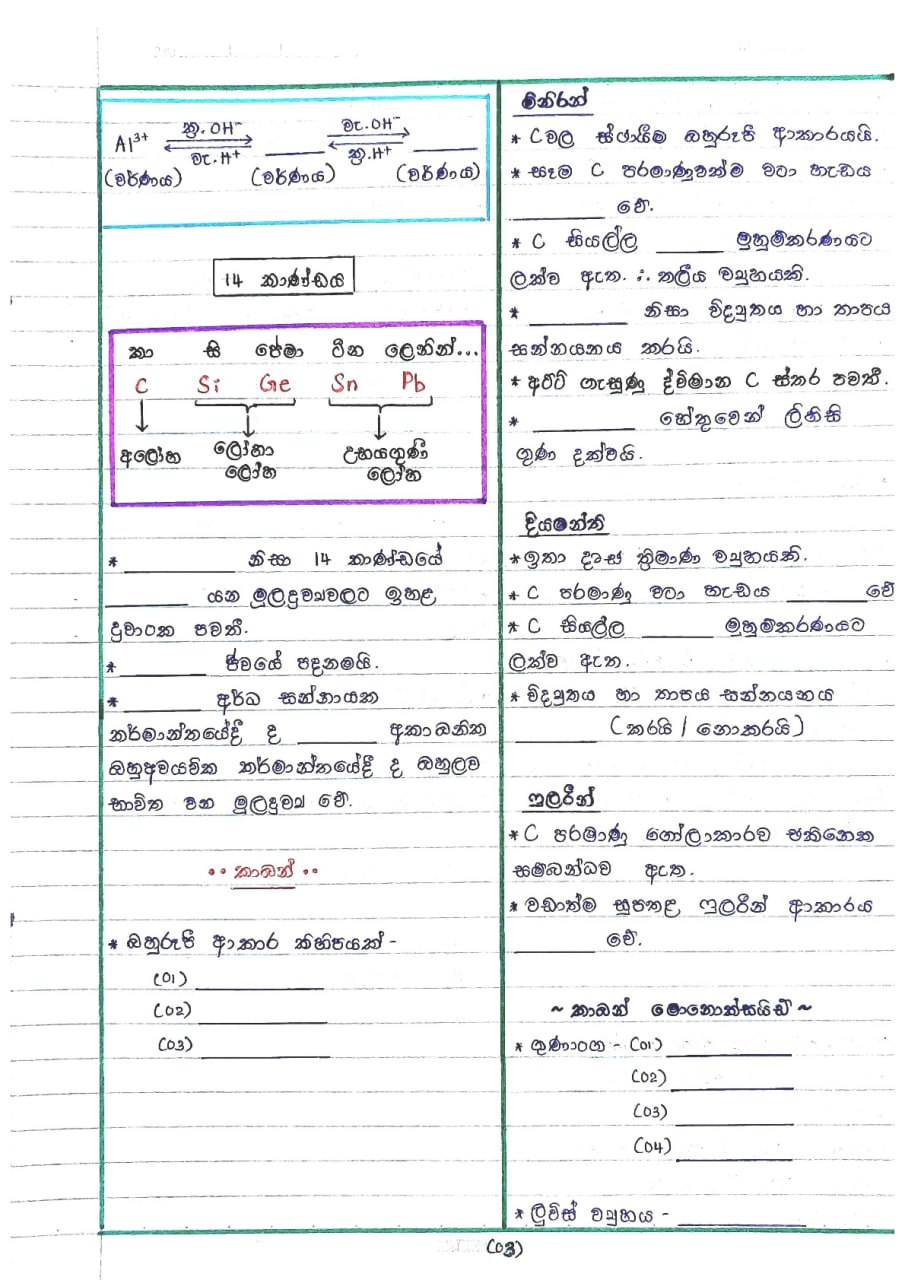 Al³⁺ ක්‍ර. OH⁻ / වැ. H⁺ ______ වැ. OH⁻ / ක්‍ර. H⁺ ______
(වර්ණය) (වර්ණය) (වර්ණය)
14 කාණ්ඩය
කා සි ජේමා ටීන ලෙනින්...
C Si Ge Sn Pb
අලෝහ ලෝහා උභයගුණී
ලෝහ ලෝහ
* ________ නිසා 14 කාණ්ඩයේ
________ යන මූලද්‍රව්‍යවලට ඉහළ
ද්‍රවාංක පවතී.
* ________ ජීවයේ පදනමයි.
* ________ අර්ධ සන්නායක
කර්මාන්තයේදී ද ________ අකාබනික
බහුඅවයවික කර්මාන්තයේදී ද බහුලව
භාවිත වන මූලද්‍රව්‍ය වේ.
•• කාබන් ••
* බහුරූපී ආකාර කිහිපයක් -
(01) ________
(02) ________
(03) ________
මිනිරන්
* C වල ස්ථායීම බහුරූපී ආකාරයයි.
* සෑම C පරමාණුවක්ම වටා හැඩය
________ වේ.
* C සියල්ල ________ මුහුම්කරණයට
ලක්ව ඇත. ∴ තලීය ව්‍යුහයකි.
* ________ නිසා විද්‍යුතය හා තාපය
සන්නයනය කරයි.
* අට්ටි ගැසුණු ද්විමාන C ස්තර පවතී.
* ________ හේතුවෙන් ලිහිසි
ගුණ දක්වයි.
දියමන්ති
* ඉතා දෘඪ ත්‍රිමාණ ව්‍යුහයකි.
* C පරමාණු වටා හැඩය ________ වේ
* C සියල්ල ________ මුහුම්කරණයට
ලක්ව ඇත.
* විද්‍යුතය හා තාපය සන්නයනය
________ (කරයි / නොකරයි)
ෆුලරීන්
* C පරමාණු ගෝලාකාරව එකිනෙක
සම්බන්ධව ඇත.
* වඩාත්ම සුපතළ ෆුලරීන් ආකාරය
________ වේ.
~ කාබන් මොනොක්සයිඩ් ~
* ගුණාංග - (01) ________
(02) ________
(03) ________
(04) ________
* ලුවිස් ව්‍යුහය - ________
(03)